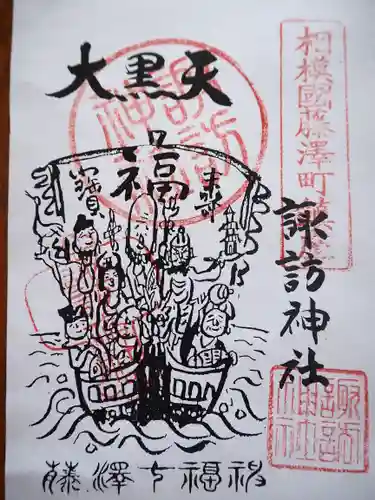 相模國藤澤町
諏訪神社
大黒天
福
寳
藤澤七福神
諏訪神社